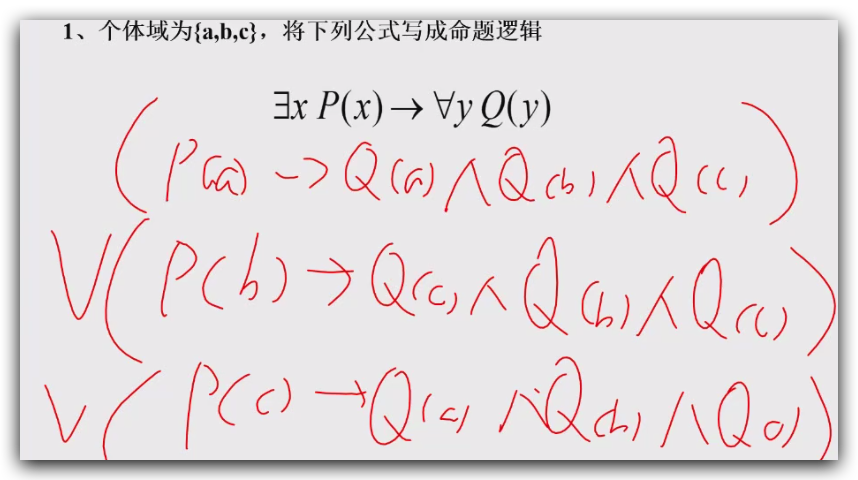 1、个体域为{a,b,c}，将下列公式写成命题逻辑
∃x P(x) → ∀y Q(y)
(P(a) → Q(a) ∧ Q(b) ∧ Q(c))
∨(P(b) → Q(c) ∧ Q(b) ∧ Q(c))
∨(P(c) → Q(a) ∧ Q(b) ∧ Q(c))